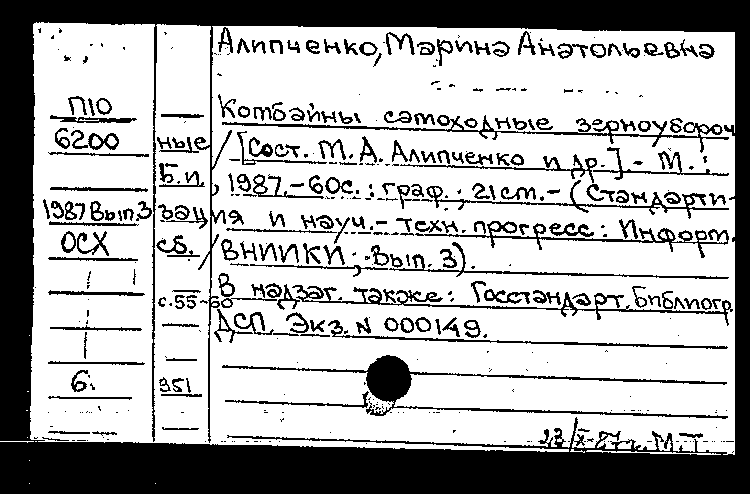 Алипченко, Марина Анатольевна
П10 Комбайны самоходные зерноубороч
6200 ные / [Сост. М. А. Алипченко и др.]. - М. :
Б.и., 1987. - 60с. : граф. ; 21 см. - (Стандарти-
1987 Вып.3 зация и науч.-техн. прогресс : Информ.
ОСХ сб. / ВНИИКИ ; Вып. 3).
с.55-60 В надзаг. также: Госстандарт. Библиогр.
ДСП. Экз. N 000149.
6. 951
23/X-87г. М.Т.